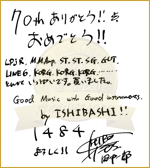 70th ありがとう!! &
おめでとう!!
LPJR, M.M.Amp, ST. ST. SG. GUT,
LINE6, KORG, KORG, KORG, ……
そしていっぱいです。買いました。
Good Music with Good instruments.
by ISHIBASHI!!
1484
よろしく!!